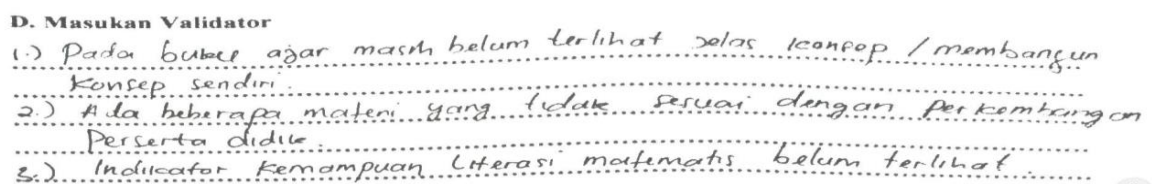 D. Masukan Validator
1.) Pada buku ajar masih belum terlihat jelas konsep / membangun
Konsep sendiri.
2.) Ada beberapa materi yang tidak sesuai dengan perkembangan
Perserta didik.
3.) Indikator kemampuan literasi matematis belum terlihat.